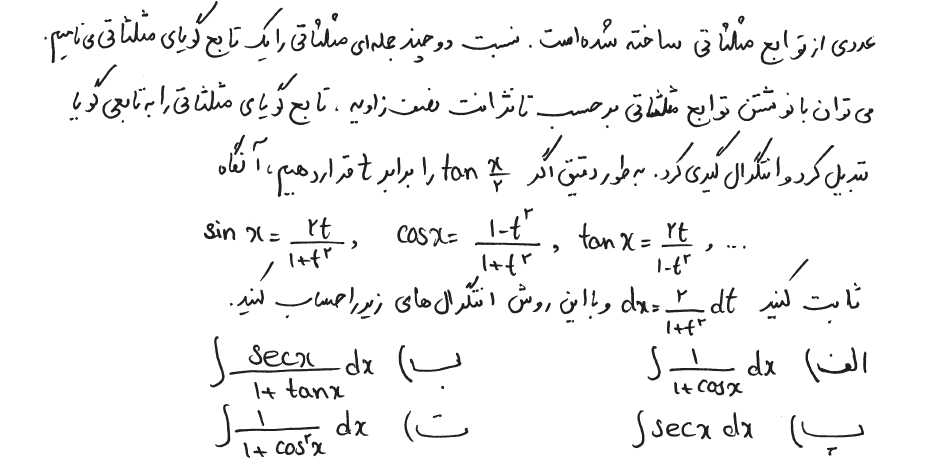 عددی از توابع مثلثاتی ساخته شده‌است. نسبت دو چند جمله‌ای مثلثاتی را یک تابع گویای مثلثاتی می‌نامیم.
می‌توان با نوشتن توابع مثلثاتی برحسب تانژانت نصف زاویه، تابع گویای مثلثاتی را به تابعی گویا
تبدیل کرد و انتگرال گیری کرد. به طور دقیق اگر tan x/۲ را برابر t قرار دهیم، آنگاه
sin x = ۲t/(۱+t^۲), cos x = (۱-t^۲)/(۱+t^۲), tan x = ۲t/(۱-t^۲), ...
ثابت کنید dx = ۲/(۱+t^۲) dt و با این روش انتگرال‌های زیر را حساب کنید.
الف) ∫ ۱/(۱+cos x) dx ب) ∫ sec x/(۱+tan x) dx
پ) ∫ sec x dx ت) ∫ ۱/(۱+cos^۲ x) dx